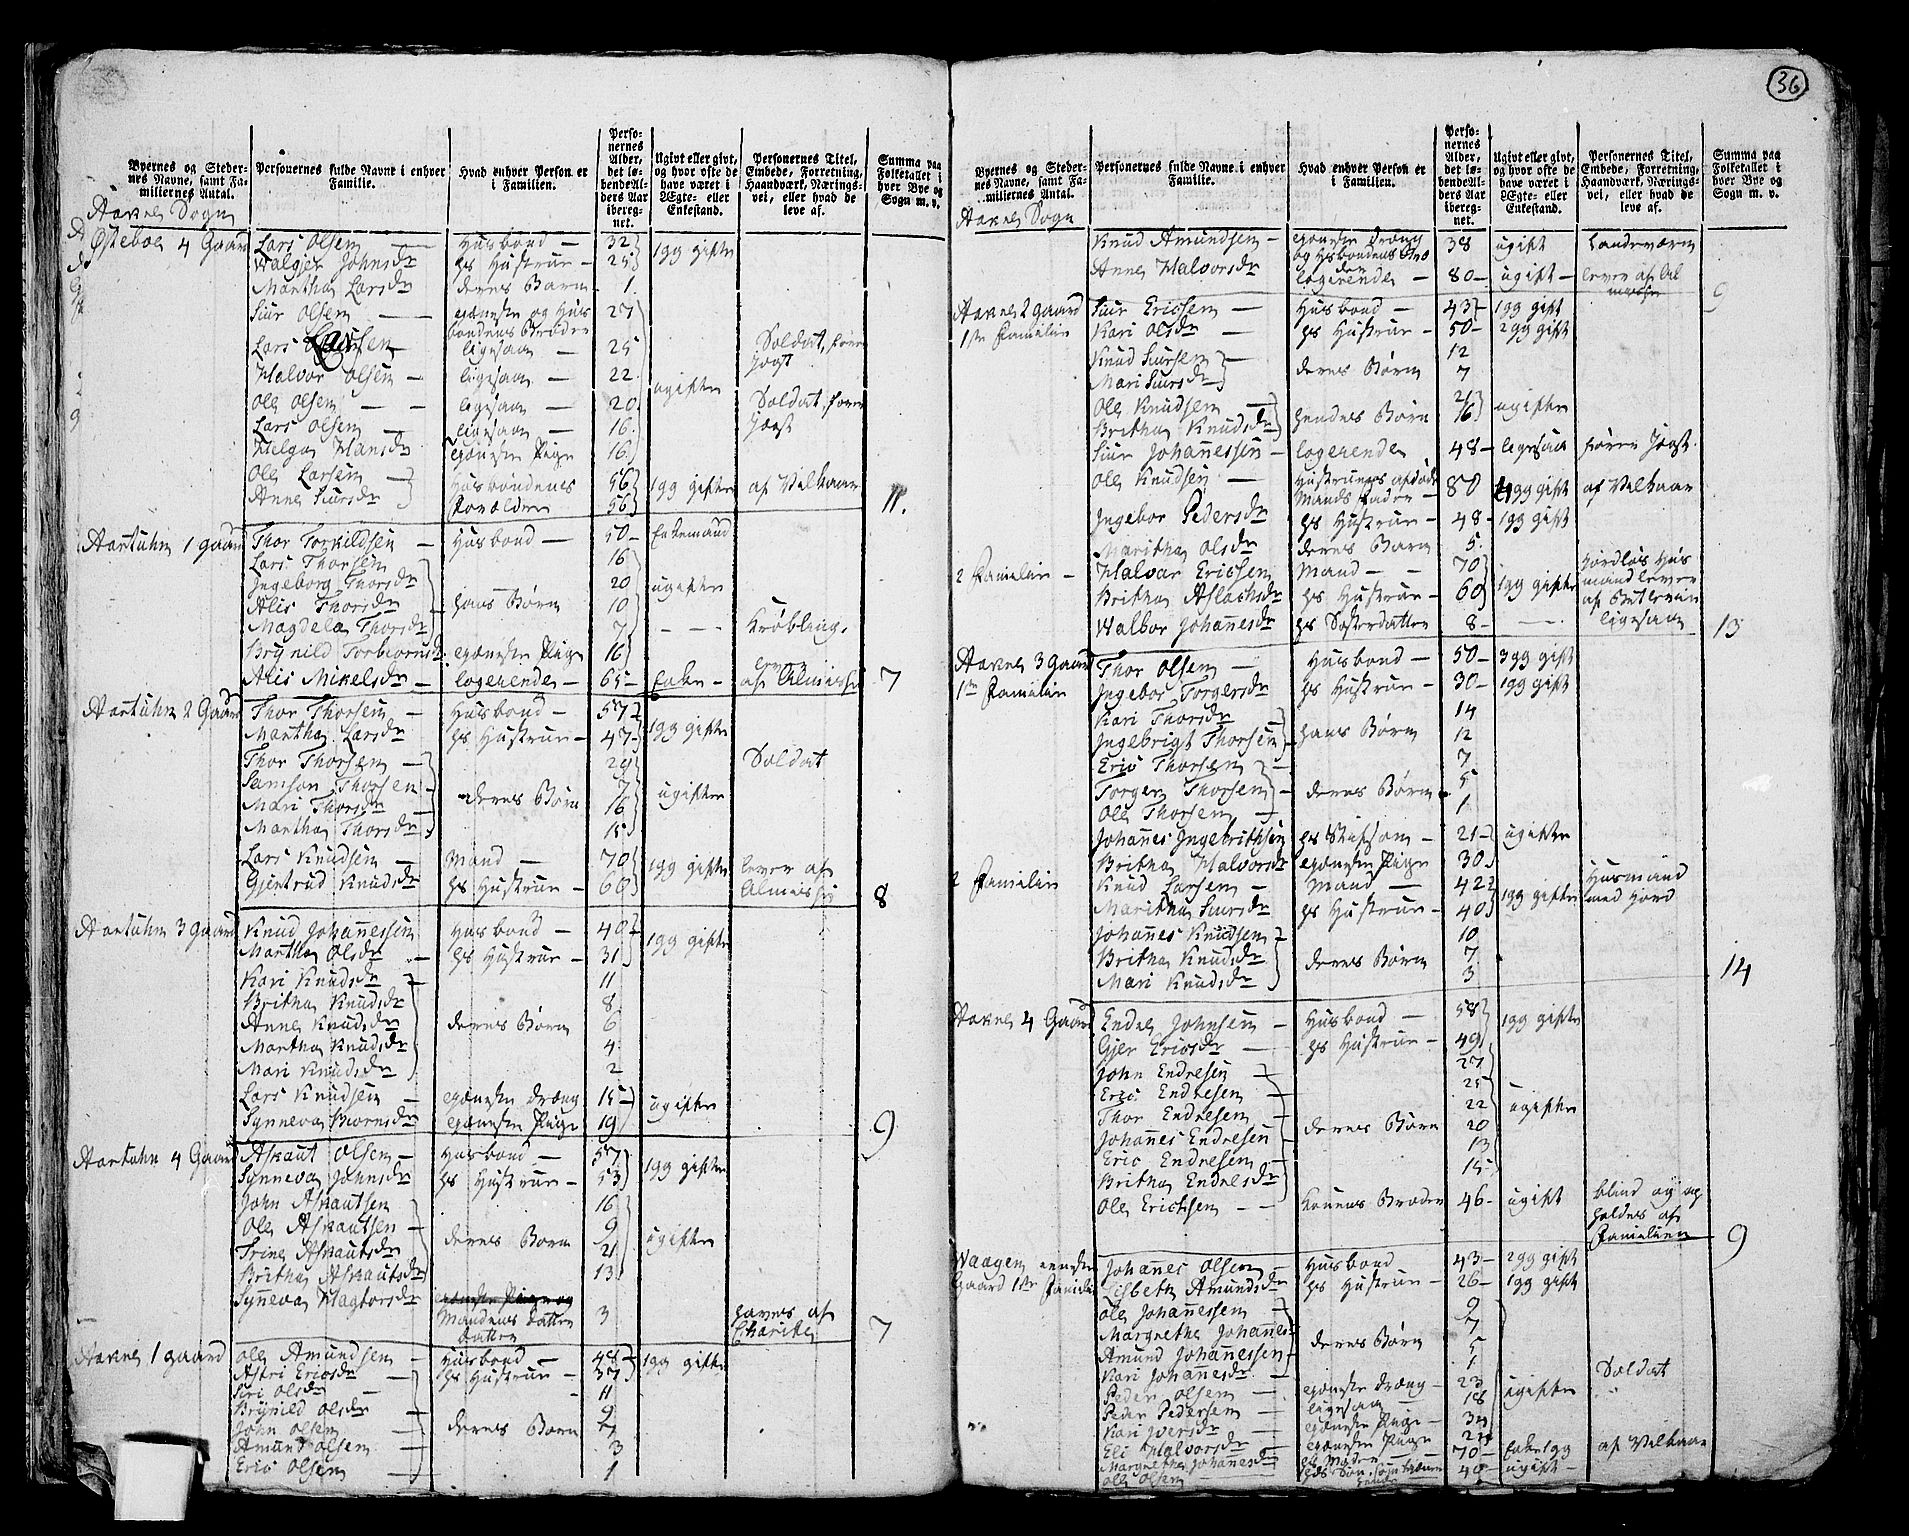 36
Byernes og Stedernes Navne, samt Familiernes Antal.
Personernes fulde Navne i enhver Familie.
Hvad enhver Person er i Familien.
Personernes Alder, det løbende Alders Aar iberegnet.
Ugivt eller givt, og hvor ofte de have været i Ægte- eller Enkestand.
Personernes Titel, Embede, Forretning, Haandværk, Næringsvei, eller hvad de leve af.
Summa paa Folketallet i hver Bye og Sogn m. v.
Aaknes Sogn
Østeboe 4 Gaard Lars Olsen — Husbond — 32 1gg gifte
Walgjer Johnsdr hs Hustrue — 25
Martha Larsdr deres Barn 1.
Siur Olsen — tjeneste og Hus 27
bondens Brødre
Lars Olsen — ligesaa — 25 Soldat, fører Jagt
Halvor Olsen — ligesaa — 22 ugifte
Ole Olsen — ligesaa — 20. Soldat, fører Jagt
Lars Olsen — ligesaa — 16.
Helga Hansdr tjeneste Pige 16
Ole Larsen Husbondens 56 1gg gifte af Vilkaar
Anne Siursdr Forældre 56 11.
Aartuhn 1 gaard Thor Torkildsen — Husbond — 50 — Enkemand
Lars Thorsen 16
Ingeborg Thorsdr 20 ugifte
Alis Thorsdr hans Børn 10
Magdela Thorsdr 7 — — Krøbling.
Brynild Torbiornsdr tjeneste Pige 16
Alis Mikelsdr — logerende — 65 — Enke — lever af Almisse 7
Aartuhn 2 Gaard Thor Thorsen — Husbond — 57 1gg gifte
Martha Larsdr hs Hustrue — 47
Thor Thorsen — 29 Soldat
Samson Thorsen — deres Børn 7 ugifte
Mari Thorsdr 16
Martha Thorsdr 15
Lars Knudsen — Mand — 70 1gg gifte lever af
Gjertrud Knudsdr hs Hustrue — 60 Almisse 8
Aartuhn 3 Gaard Knud Johanesen Husbond — 40 1gg gifte
Martha Olsdr hs Hustrue — 31
Kari Knudsdr 11
Britha Knudsdr 8
Anne Knudsdr deres Børn 6
Martha Knudsdr 4
Mari Knudsdr 2
Lars Knudsen — tjeneste dræng 15 — ugifte
Synneva Biornsdr tjeneste Pige 19 9
Aartuhn 4 Gaard Askaut Olsen — Husbond — 57 1gg gifte
Synneva Johnsdr hs Hustrue — 53
John Askautsen 16
Ole Askautsen — deres Børn 9 ugifte
Trine Askautsdr 21
Britha Askautsdr 13
Synneva Hagtorsdr Mandens Datter Datter 3 haves af Charite 7
Aaknes 1 gaard Ole Amundsen — Husbond — 48 1gg gifte
Astri Ericsdr — hs Hustrue — 37
Siri Olsdr — 11
Brynild Olsdr 9
John Olsen — deres Børn 7
Amund Olsen — 3
Eric Olsen — 1
Byernes og Stedernes Navne, samt Familiernes Antal.
Personernes fulde Navne i enhver Familie.
Hvad enhver Person er i Familien.
Personernes Alder, det løbende Alders Aar iberegnet.
Ugivt eller givt, og hvor ofte de have været i Ægte- eller Enkestand.
Personernes Titel, Embede, Forretning, Haandværk, Næringsvei, eller hvad de leve af.
Summa paa Folketallet i hver Bye og Sogn m. v.
Aaknes Sogn
Knud Amundsen — tjeneste dræng og Hsbondens Broder 38 ugift Landeværn
Anne Halvorsdr logerende — 80 — ugift — lever af Almisse 9
Aaknes 2 gaard Siur Ericsen — Husbond — 43 — 1gg gift
1ste Familie Kari Olsdr — hs Hustrue — 50 — 2gg gift
Knud Siursen — deres Børn 12
Mari Siursdr 7
Ole Knudsen — hendes Børn 21 ugifte
Britha Knudsdr 16
Siur Johanessen — logerende 48 — ligesaa fører Jagt.
Ole Knudsen — Hustruens afdøde Mands Fader — 80 gg gift af Vilkaar
Ingebor Pedersdr hs Hustrue — 48 — 1gg gift
Maritha Olsdr deres Barn 5.
2 Familie — Halvar Ericsen Mand — 70 1gg gifte Jordløs Husmand lever af
Britha Aslachsdr hs Hustrue — 60
Walbor Johanesdr hs Søsterdatter 8 — — ligesaa 13
Aaknes 3 gaard Thor Olsen — Husbond — 50 — 3gg gift
1ste Familie Ingebor Torgersdr hs Hustrue — 30 — 1gg gift
Kari Thorsdr — 14
Ingebrigt Thorsen hans Børn 12
Eric Thorsen — 7
Torger Thorsen — deres Børn 5
Ole Thorsen — 1
Johanes Ingebrithsen hs Stifsøn — 21 — ugifte
Britha Halvorsdr tjeneste Pige 30
2 Familie Knud Larsen — Mand — 42 1gg gifte Husmand med Jord
Maritha Siursdr hs Hustrue — 40
Johanes Knudsen 10
Britha Knudsdr deres Børn 7
Mari Knudsdr 3 14
Aaknes 4 Gaard Endre Johnsen — Husbond — 58 1gg gifte
Gjer Ericsdr — hs Hustrue — 49
John Endresen — 27
Eric Endresen 25
Thor Endresen — 22 ugifte
Johanes Endresen deres Børn 20
Eric Endresen — 13
Britha Endresdr 15
Ole Erichsen — Konens Broder 46 — ugift blind og opholdes af Familien 9
Waagen eneste Johanes Olsen — Husbond 43 — 2gg gift
Gaard 1ste Familie Lisbeth Amundsdr hs Hustrue — 26 — 1gg gift
Ole Johanessen — 9
Margrethe Johanes 7
Amund Johanessen deres Børn 5
Kari Johanesdr 1
Peder Olsen — tjeneste dræng — 23 ugifte Soldat
Peder Pedersen — ligesaa — 18
Kari Iversdr — tjeneste Pige — 34
Eli Halvorsdr — tjeneste Pige
Margretha Johanesdr hs Moder 70 — Enke 1gg af Vilkaar
Ole Olsen 40 — ugift —